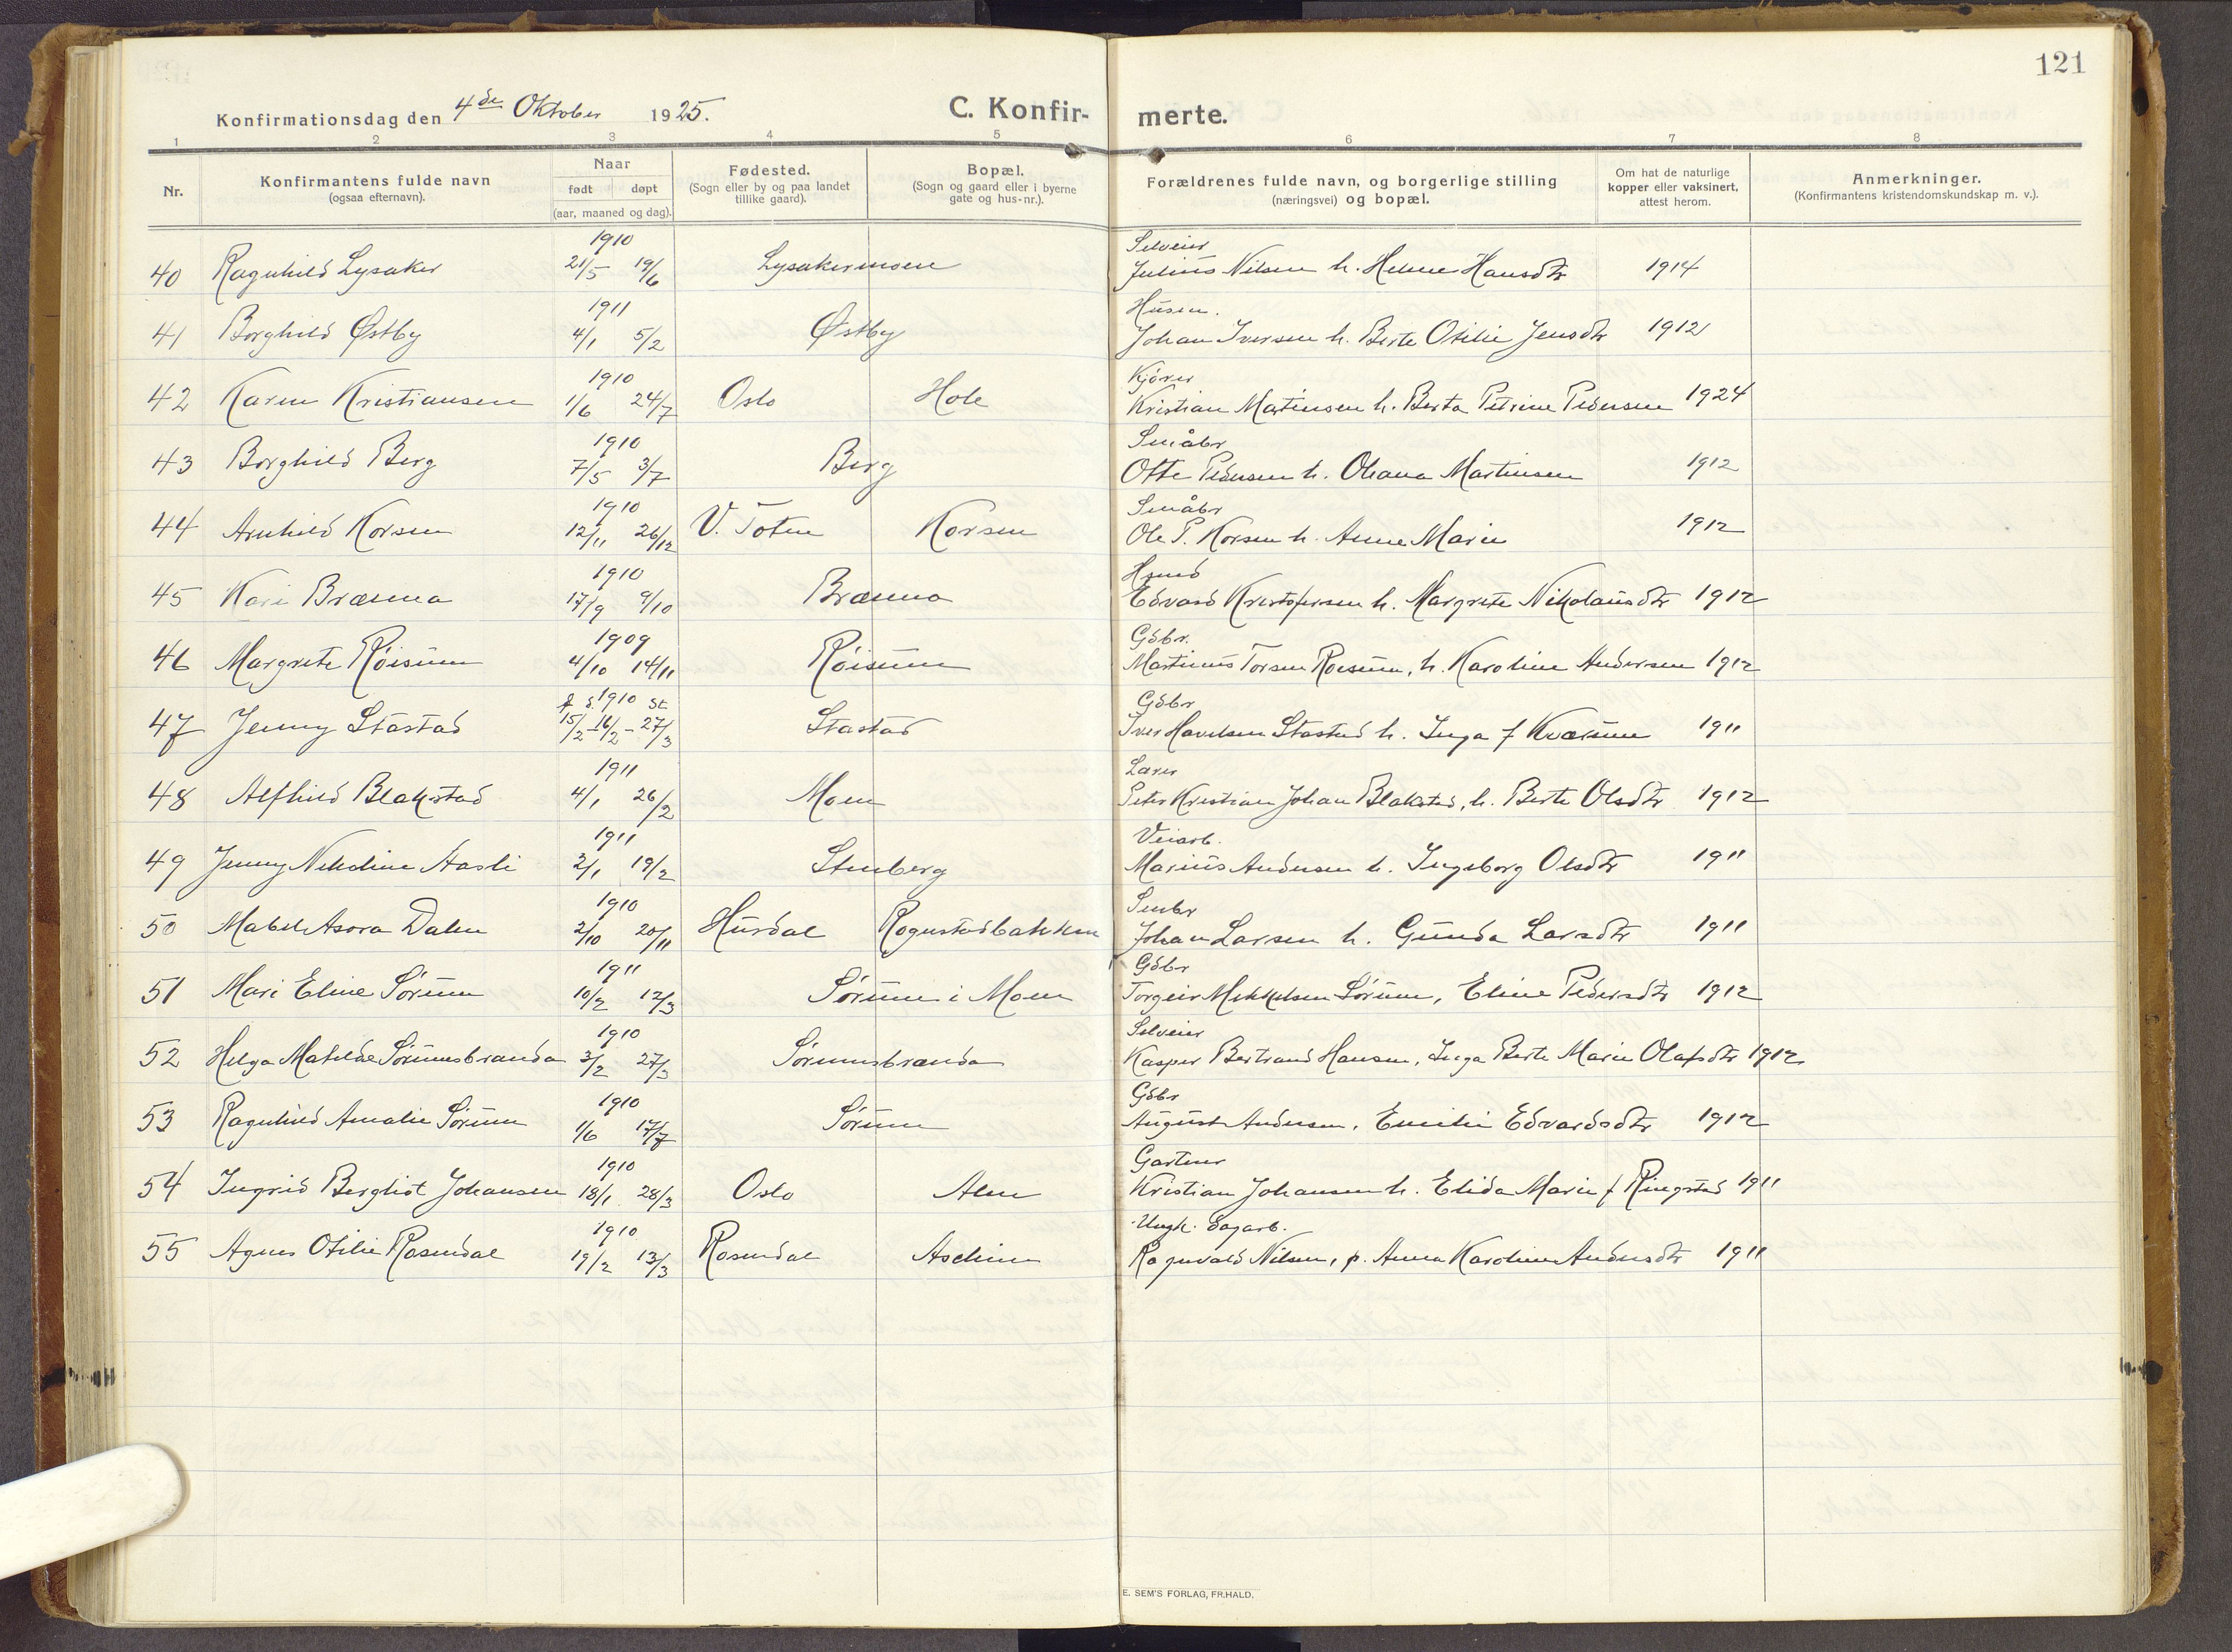 121
Konfirmationsdag den 4de Oktober 1925. C. Konfir- merte.
1 2 3 4 5 6 7 8
Nr. Konfirmantens fulde navn (ogsaa efternavn). Naar født døpt (aar, maaned og dag). Fødested. (Sogn eller by og paa landet tillike gaard). Bopæl. (Sogn og gaard eller i byerne gate og hus-nr.). Forældrenes fulde navn, og borgerlige stilling (næringsvei) og bopæl. Om hat de naturlige kopper eller vaksinert, attest herom. Anmerkninger. (Konfirmantens kristendomskundskap m. v.).
1910 Selveier
40 Ragnhild Lysaker 21/5 19/6 Lysakermoen Julius Nilsen h. Helene Hansdtr 1914
1911 Husm.
41 Borghild Østby 4/1 5/2 Østby Johan Iversen h. Berte Otilie Jensdtr 1912
1910 Kjörer
42 Karen Kristiansen 1/6 24/7 Oslo Hole Kristian Martinsen h. Berta Petrine Pedersen 1924
1910 Småbr
43 Borghild Berg 7/5 3/7 Berg Otte Pedersen h. Oleana Martinsen 1912
1910 Småbr
44 Arnhild Korsen 12/11 26/12 V. Toten Korsen Ole P. Korsen h. Anne Marie 1912
1910 Hsmd
45 Kari Brænna 17/9 9/10 Brænna Edvard Kristofersen h. Margrete Nikolaisdtr 1912
1909 Gdbr.
46 Margrete Röisum 4/10 14/11 Röisum Martinus Torsen Roesum, h. Karoline Andersen 1912
f d. 1910 St. Gdbr
47 Jenny Stastad 15/2 - 16/2 - 27/3 Stastad Iver Havelsen Stastad h. Inga f Kværum 1911
1911 Lærer
48 Alfhild Blakstad 4/1 26/2 Moen Peter Kristian Johan Blakstad, h. Berte Olsdtr 1912
1911 Veiarb.
49 Jenny Nikoline Aasli 2/1 19/2 Stenberg Marius Andersen h. Ingeborg Olsdtr 1911
1910 Smbr
50 Mabel Asora Dalen 2/10 20/11 Hurdal Rognstadbakken Johan Larsen h. Gunda Larsdtr 1911
1911 Gdbr
51 Mari Eline Sörum 10/2 12/3 Sörum i Moen Torgeir Mikkelsen Sörum, Eline Pedersdtr 1912
1910 Selveier
52 Helga Matilde Sörumsbranda 3/2 27/3 Sörumsbranda Kasper Bertrand Hansen, Inga Berte Marie Olafsdtr 1912
1910 Gdbr
53 Ragnhild Amalie Sörum 1/6 17/7 Sörum August Andersen, Emilie Edvardsdtr 1912
1910 Gartner
54 Ingrid Bergliot Johansen 18/1 28/3 Oslo Alm Kristian Johansen h. Elida Marie f Ringstad 1911
1910 Ungk. Sagarb.
55 Agnes Otilie Rosendal 19/2 13/3 Rosendal Aschim Ragnvald Nilsen, p. Anna Karoline Andersdtr 1911
E. SEM'S FORLAG, FR.HALD.